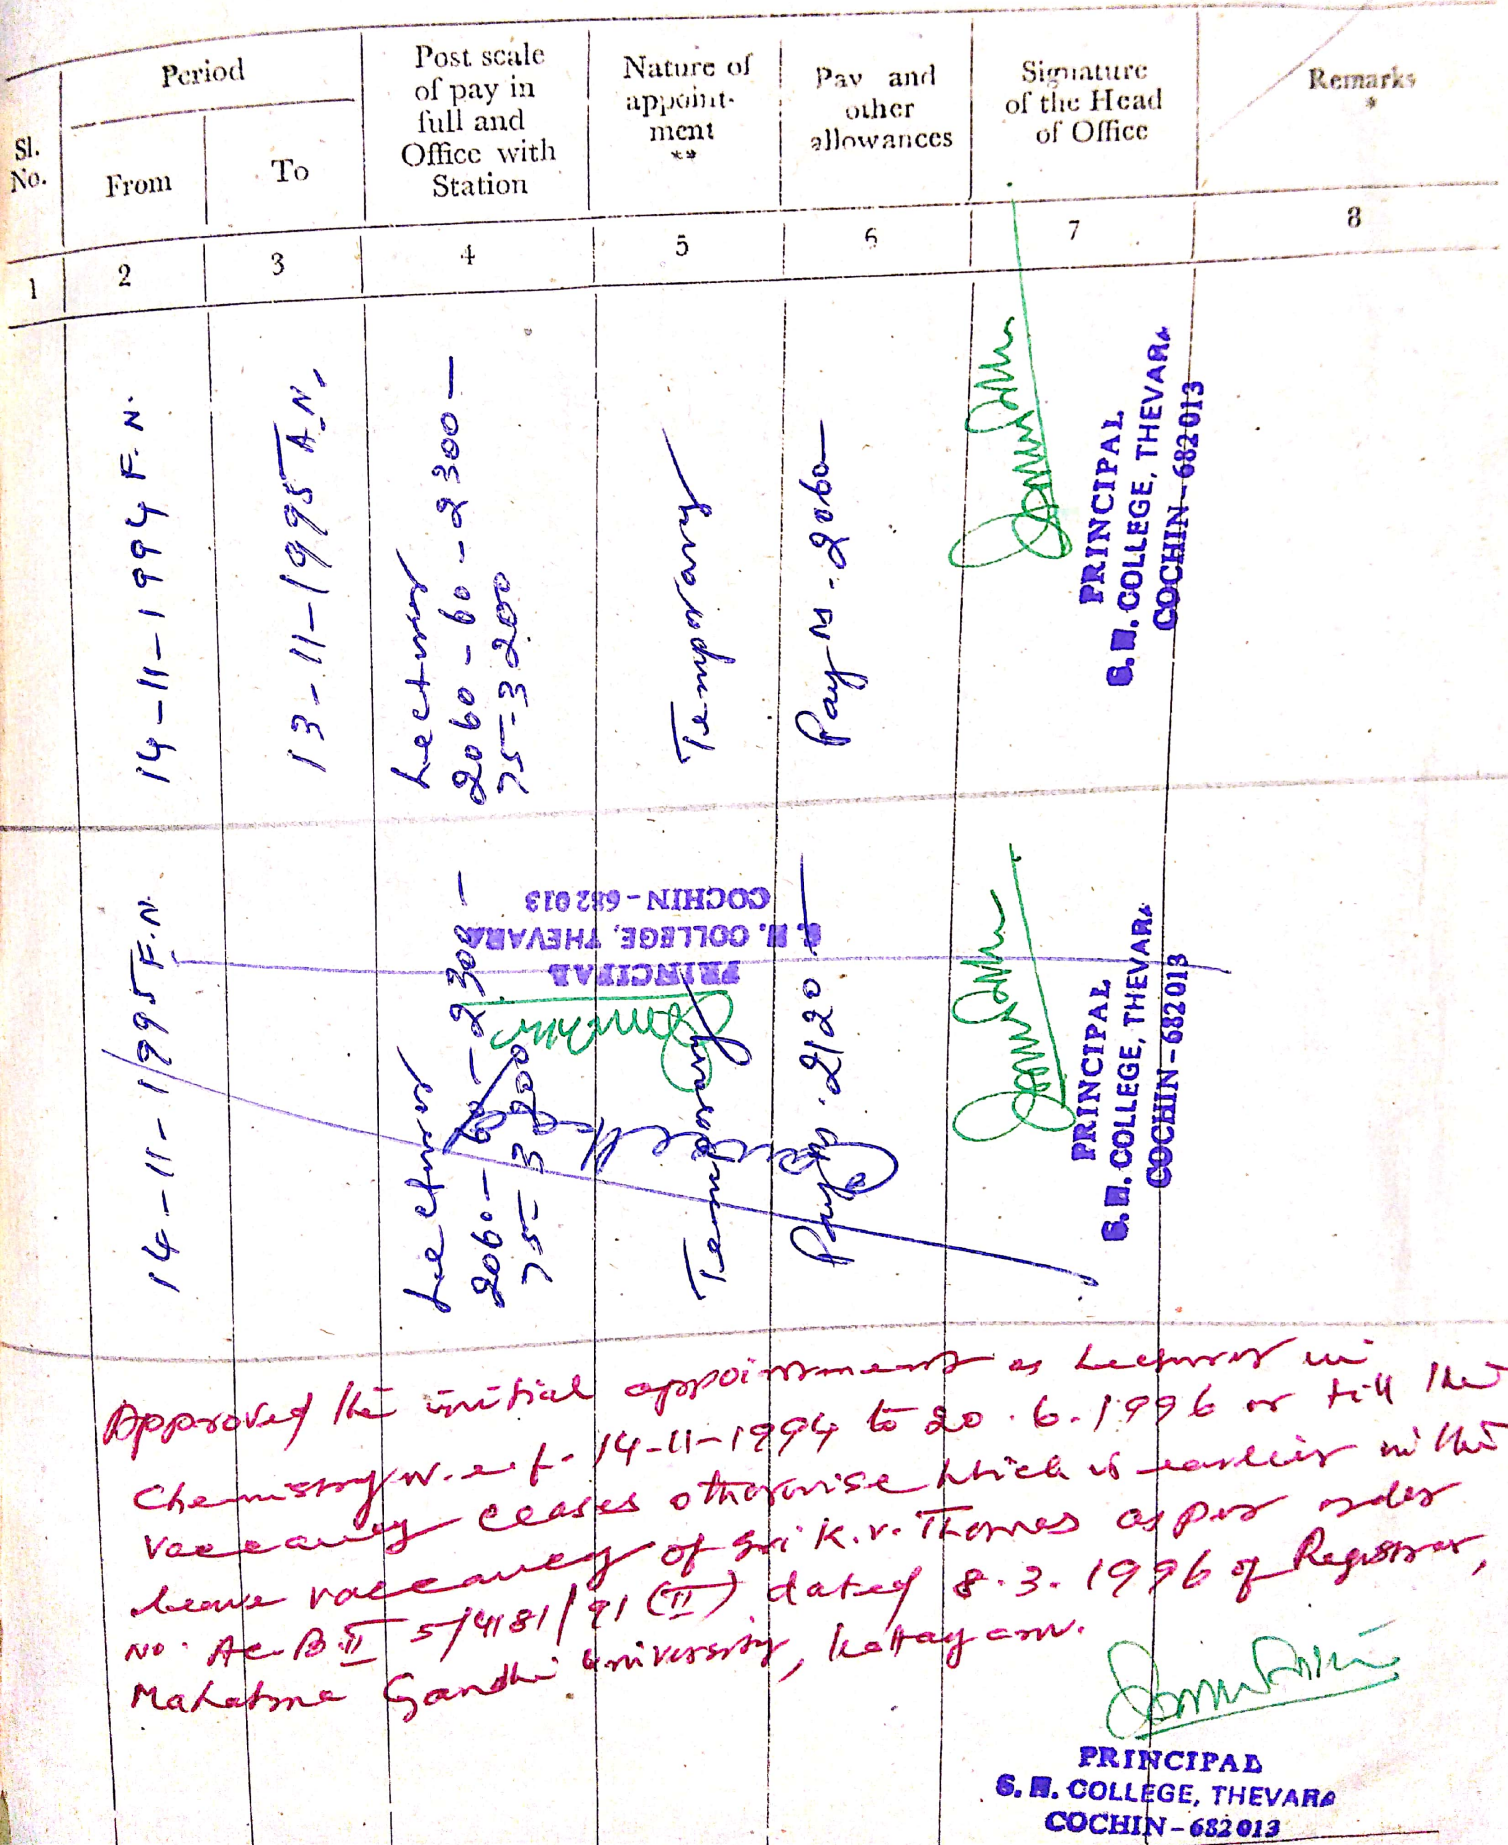 Sl. No.
Period
From
To
Post scale of pay in full and Office with Station
Nature of appoint- ment **
Pay and other allowances
Signature of the Head of Office
Remarks *
1 2 3 4 5 6 7 8
14-11-1994 F.N.
13-11-1995 A.N.
Lecturer
2060-60-2300-
75-3200
Temporary
Pay Rs. 2060
PRINCIPAL
S.H. COLLEGE, THEVARA
COCHIN-682013
14-11-1995 F.N.
Lecturer
2060-60-2300-
75-3200
Temporary
Pay Rs. 2120
Cancelled
PRINCIPAL
S.H. COLLEGE, THEVARA
COCHIN-682013
PRINCIPAL
S.H. COLLEGE, THEVARA
COCHIN-682013
Approved the initial appointment as Lecturer in
Chemistry w.e.f. 14-11-1994 to 20.6.1996 or till the
vaccancy ceases otherwise which is earlier in the
leave vaccancy of Sri K.V. Thomas as per order
No. Ac.B.II 5/4181/91 (II) dated 8.3.1996 of Registrar,
Mahatma Gandhi University, Kottayam.
PRINCIPAL
S.H. COLLEGE, THEVARA
COCHIN-682013